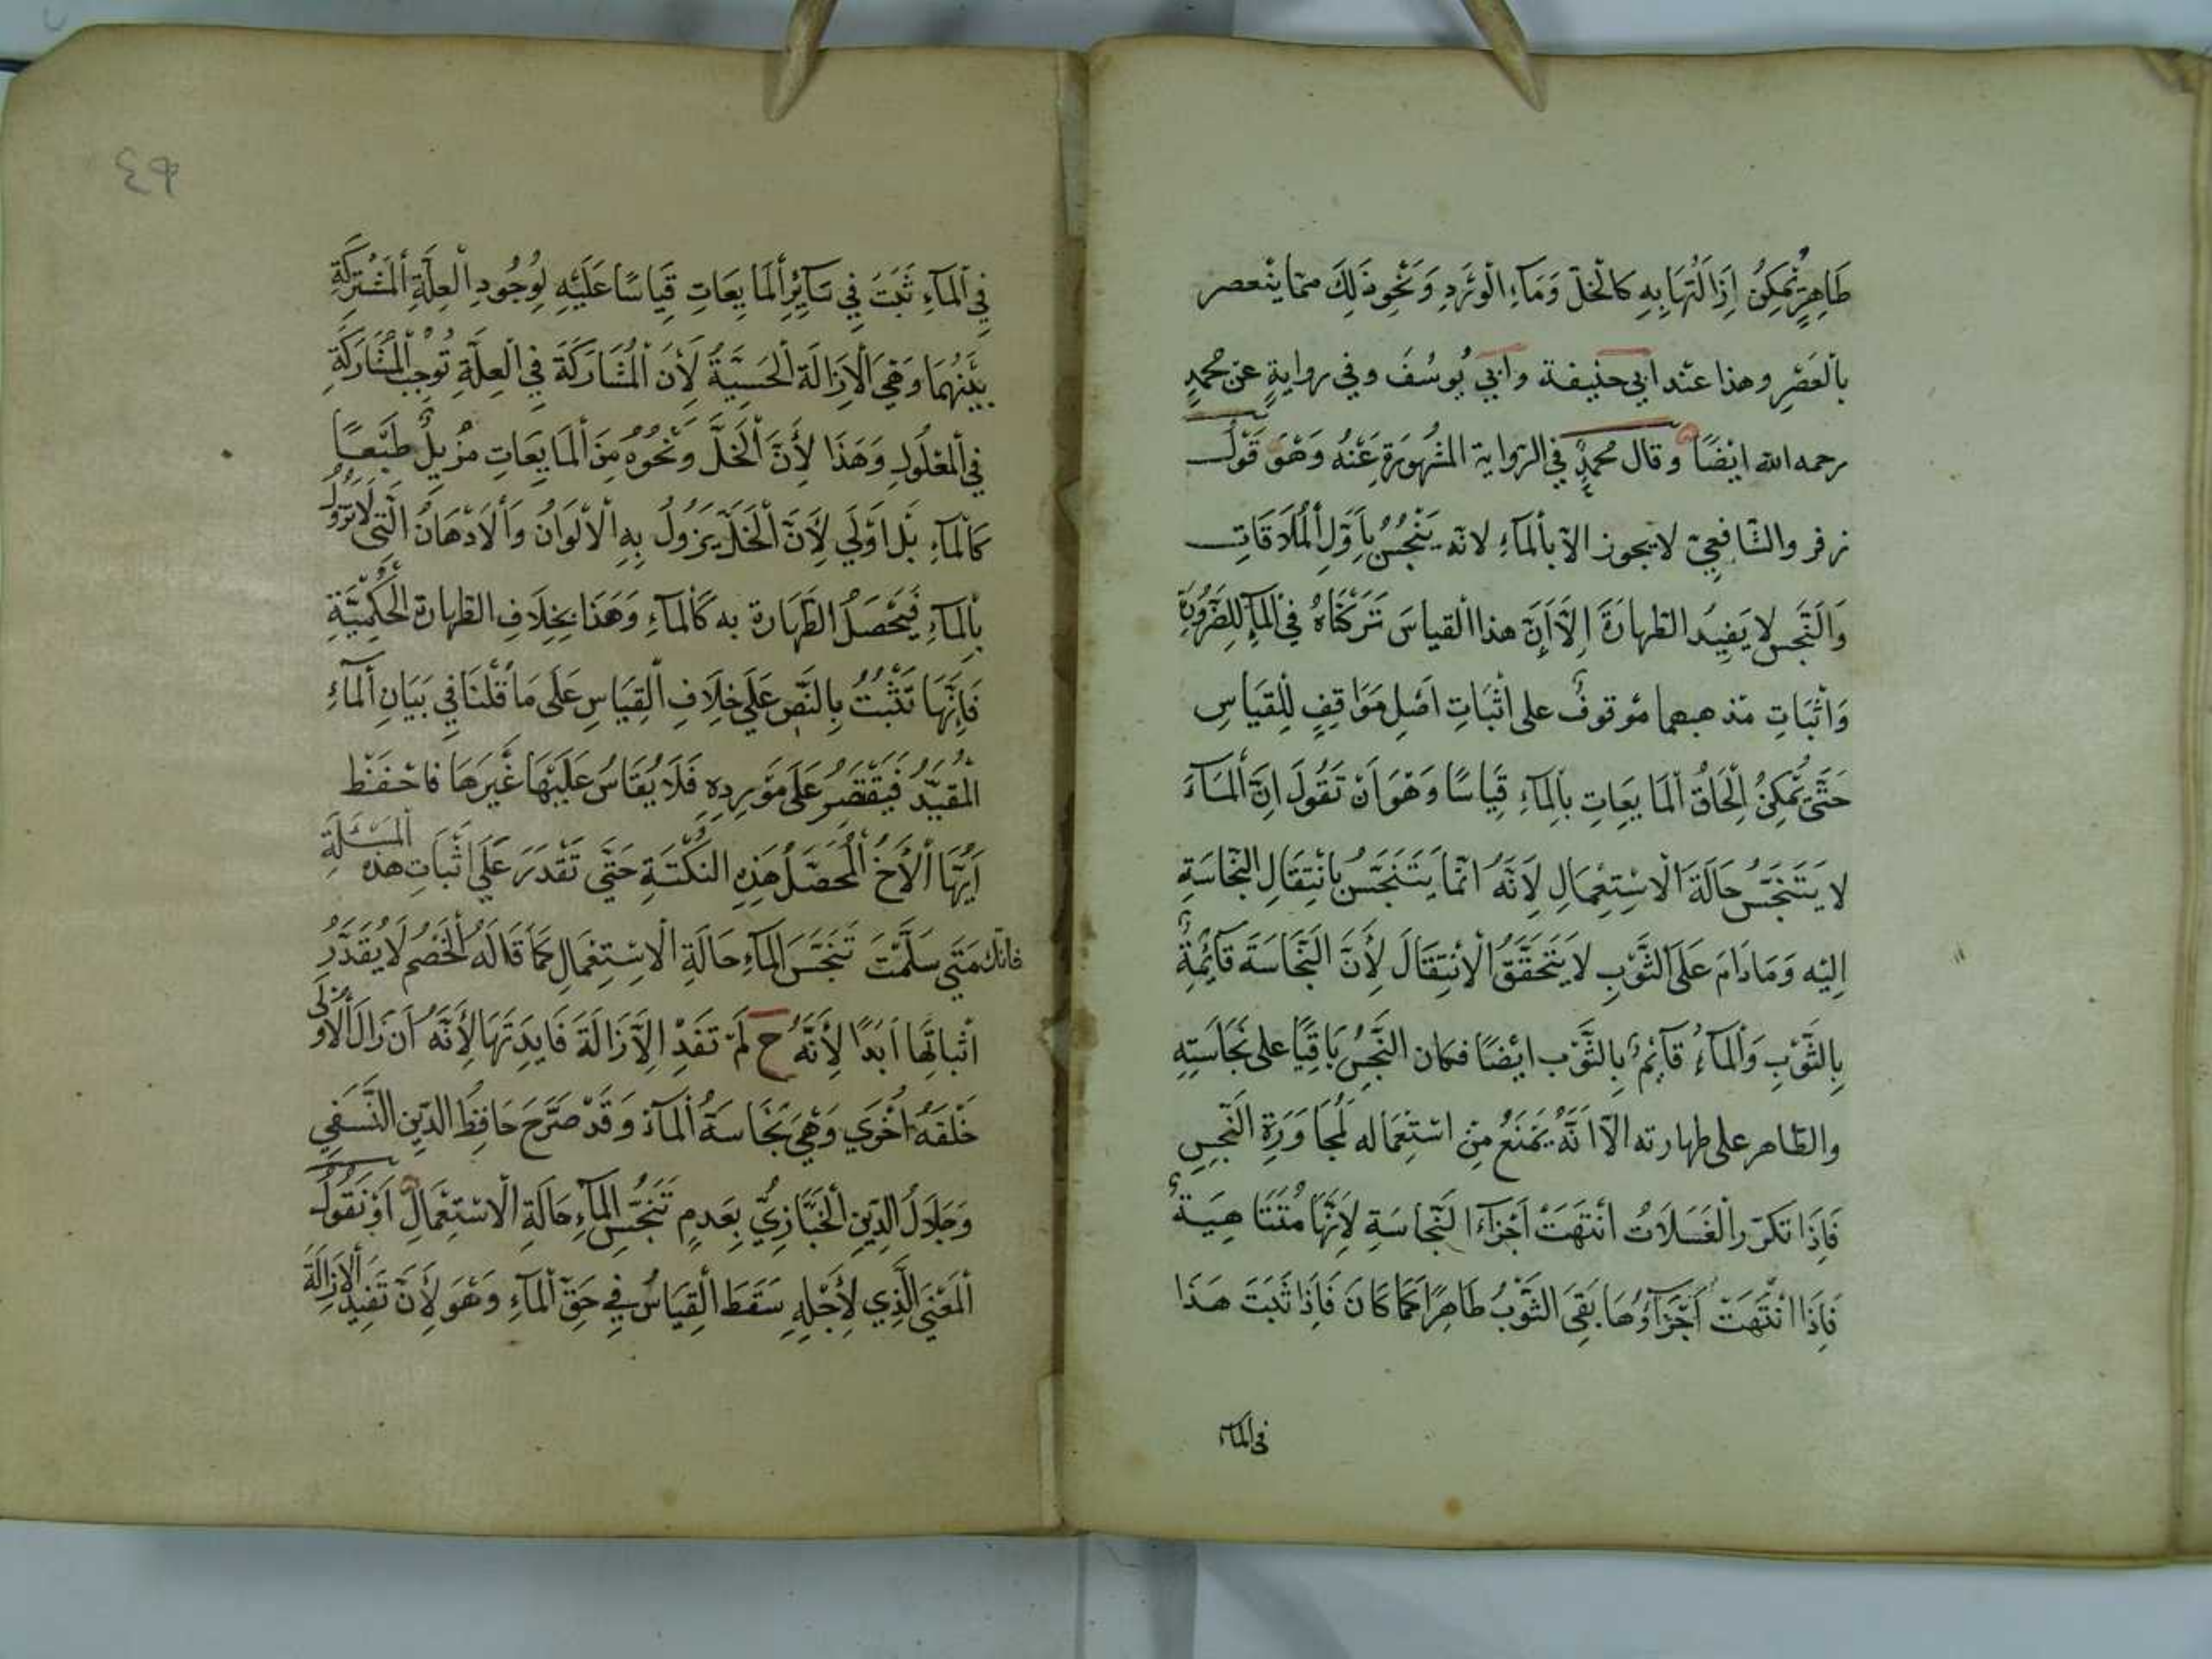 طَاهِرٍ يُمْكِنُ اِزَالَتُهَا بِهِ كَالْخَلّ وَمَآءِ الْوَرْدِ وَنَحْوِ ذٰلِكَ ممّا ينْعصر
بالْعَصْرِ وهذا عنْد ابى حنيفة وابي يُوسُفَ وفي رِوايةٍ عن محمدٍ
رحمه الله ايضًا وقال محمدٍ في الرّواية المشْهُورَةِ عَنْهُ وَهْوَ قَوْلُ
زفر والشّافعيّ لا يجوز الاّ بألمآءِ لانّه يَنْجُسُ بِاَوّلِ الْمُلَاقَاتِ
وَالنَّجس لا يَفِيدُ الطّهارَةَ اِلاّ اَنّ هذا القياسَ تَرَكْنَاهُ في الْمآءِ للِضَّرُورَةِ
وَاثْبَاتِ مذهبهما مَوقوفٌ على اثْبَاتِ اَصْلِ مَوَاقِفٍ لِلْقيَاسِ
حَتّى يُمْكِنُ اِلْحَاقُ الْمَايِعَاتِ بالْمآءِ قِيَاسًا وَهْوَ اَنْ تَقُولَ اِنّ الْمَآءَ
لا يَتَنَجَّسُ حَالَةَ الْاسْتِعْمَالِ لِاَنّهُ انّما يَتَنَجَّسُ بِانْتِقَالِ النّجاسَةِ
اِليْه وَمَادَامَ عَلىَ الثَّوْبِ لَا يَتَحَقَّقُ الْانْتِقَالَ لِأَنّ النَّجَاسَةَ قَآئِمَةٌ
بِالثَّوْبِ وَالْمآءُ قآئِمٌ بِالثَّوْب ايْضًا فكان النَّجِسُ بَاقِيًا على نَجَاسَتِهِ
والطّاهر على طهارته الاّ اَنّهُ يَمْنَعُ مِنْ اسْتِعْمَاله لمُجَاوَرَةِ النَّجِسِ
فَاِذَا تكرّر الْغَسَلَاتُ انْتَهَتْ اَجْزَآءُ النّجاسَةِ لِاَنَّهَا مُتَنَاهِيَةٌ
فَاِذَا انْتَهَتْ اَجْزَآؤُهَا بَقِىَ الثَّوْبُ طَاهِرًا كَمَا كَانَ فَاِذَا ثَبَتَ هَذَا
فى الماء
٤٩
فِي الْمَآءِ ثَبَتَ فِي سَآئِرِ الْمَايِعَاتِ قِيَاسًا عَلَيْهِ لِوُجُودِ الْعِلَّةِ الْمُشْتَرِكَةِ
بَيْنَهُمَا وَهْىَ الْاِزَالَة الْحِسِيَّةُ لِأَنّ الْمُشَارَكَةَ فِي الْعِلَّةِ تُوجِبُ الْمُشَارَكَةِ
فِي الْمعْلُولِ وَهَذَا لِأَنَّ الْخَلَّ وَنَحْوُهُ مِنَ الْمَايِعَاتِ مُزِيلٌ طَبْعًا
كَالْمآءِ بَلْ اَوْلَي لِأَنّ الْخَلّ يَزُولُ بِهِ الْاَلْوَانُ وَالْاَدْهَانُ الّتى لَا تَزُولُ
بِالْمآءِ فَيَحْصَلُ الطَّهَارة به كَالْمآءِ وَهَذَا بِخِلَافِ الطّهارة الْحُكْمِيَّةِ
فَاِنَّهَا تَثْبُتُ بِالنَّصِ عَلَي خِلَافِ الْقِيَاسِ عَلَى مَا قُلْنَا فِي بَيَانِ الْمآءِ
الْمُقَيَّدُ فَيَقْتَصِرُ عَلَى مَوْرِدِهِ فَلَا يُقَاسُ عَلَيْهَا غَيْرَهَا فاحْفَظْ
اَيُّهَا الْأَخُ الْمُحَصّلُ هَذِهِ النّكْتَةِ حَتّى تَقْدَرَ عَلَي اثْبَاتِ هذه الْمَسْئَلَةِ
فانّك مَتَى سَلَّمْتَ تَنَجَّسَ الْمآءِ حَالَةِ الْاسْتِعْمَالِ كَمَا قَالَهُ الْخَصْمُ لَا يُقَدّرُ
اثْبَاتِهَا اَبَدًا لِأَنَّهُ ح لَمْ تَفَدْ الْاِزَالَةَ فَايِدَتَهَا لِأَنَّهُ اَنْ زَالَ الْاُولَى
خَلَفَهُ اُخْرَي وَهْيَ نَجَاسَةُ الْمآءِ وَقَدْ صَرَّحَ حَافِظُ الدّين النَّسَفِي
وَجَلَالُ الدّينِ الْخَبّازِيُّ بِعَدمِ تَنَجُّسِ الْمآءِ حَالَةِ الْاسْتِعْمَالِ اَوْ نَقُولُ
الْمَعْنَي الَّذِي لِأَجْلِهِ سَقَطَ الْقِيَاسُ فِي حَقّ الْمآءِ وَهْوَ لِأَنّ تَفِيدُ الْاِزَالَةَ